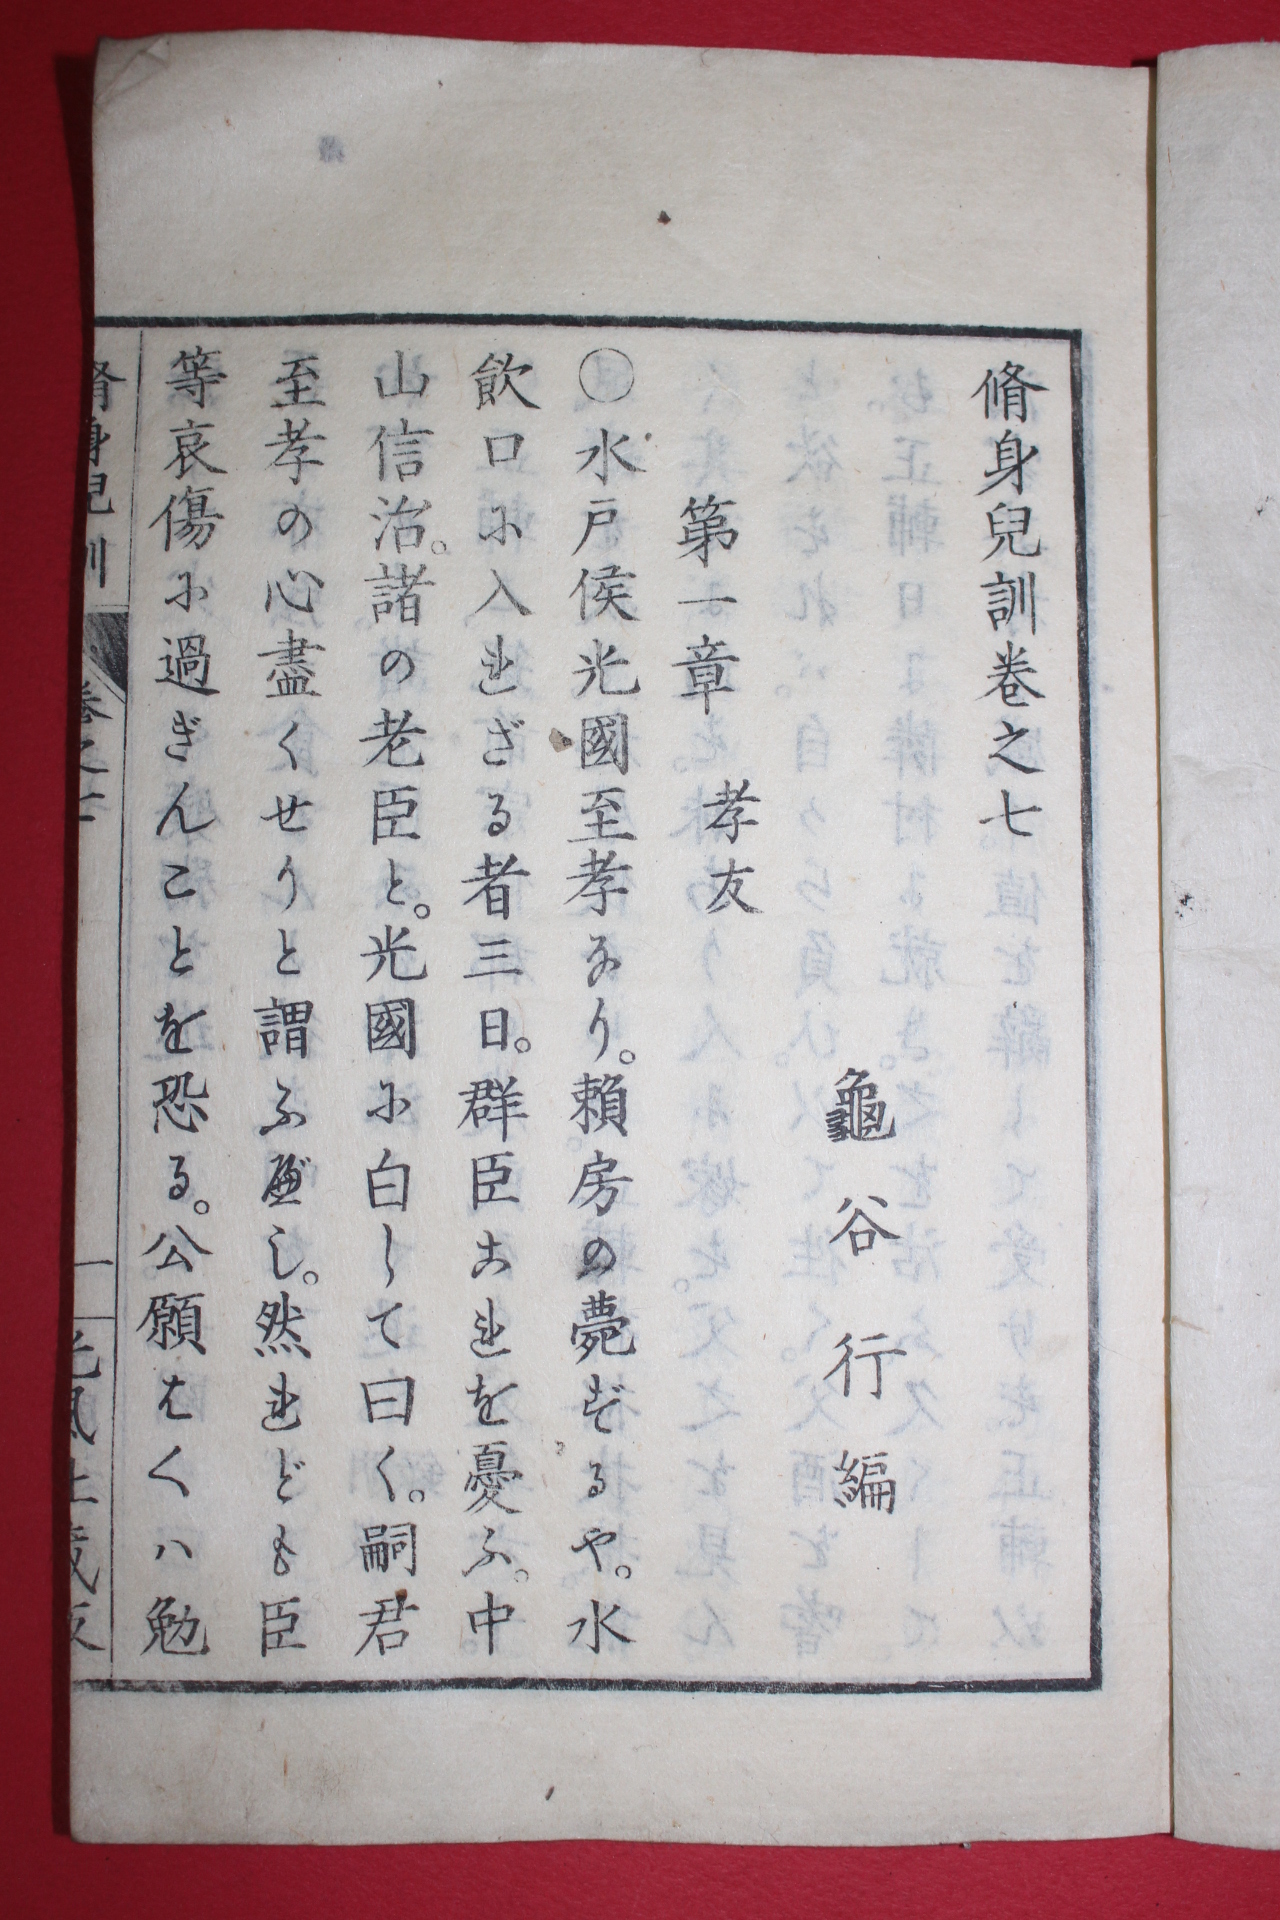 脩身兒訓卷之七
龜谷行編
第一章 孝友
○水戸侯光國至孝なり。頼房の薨ずるや。水
飲口に入れざる者三日。群臣これを憂ふ。中
山信治。諸の老臣と。光國に白して曰く。嗣君
至孝の心盡くせりと謂ふべし。然れども臣
等哀傷に過ぎんことを恐る。公願はくハ勉
脩身兒訓 卷之七 一 光風社藏版